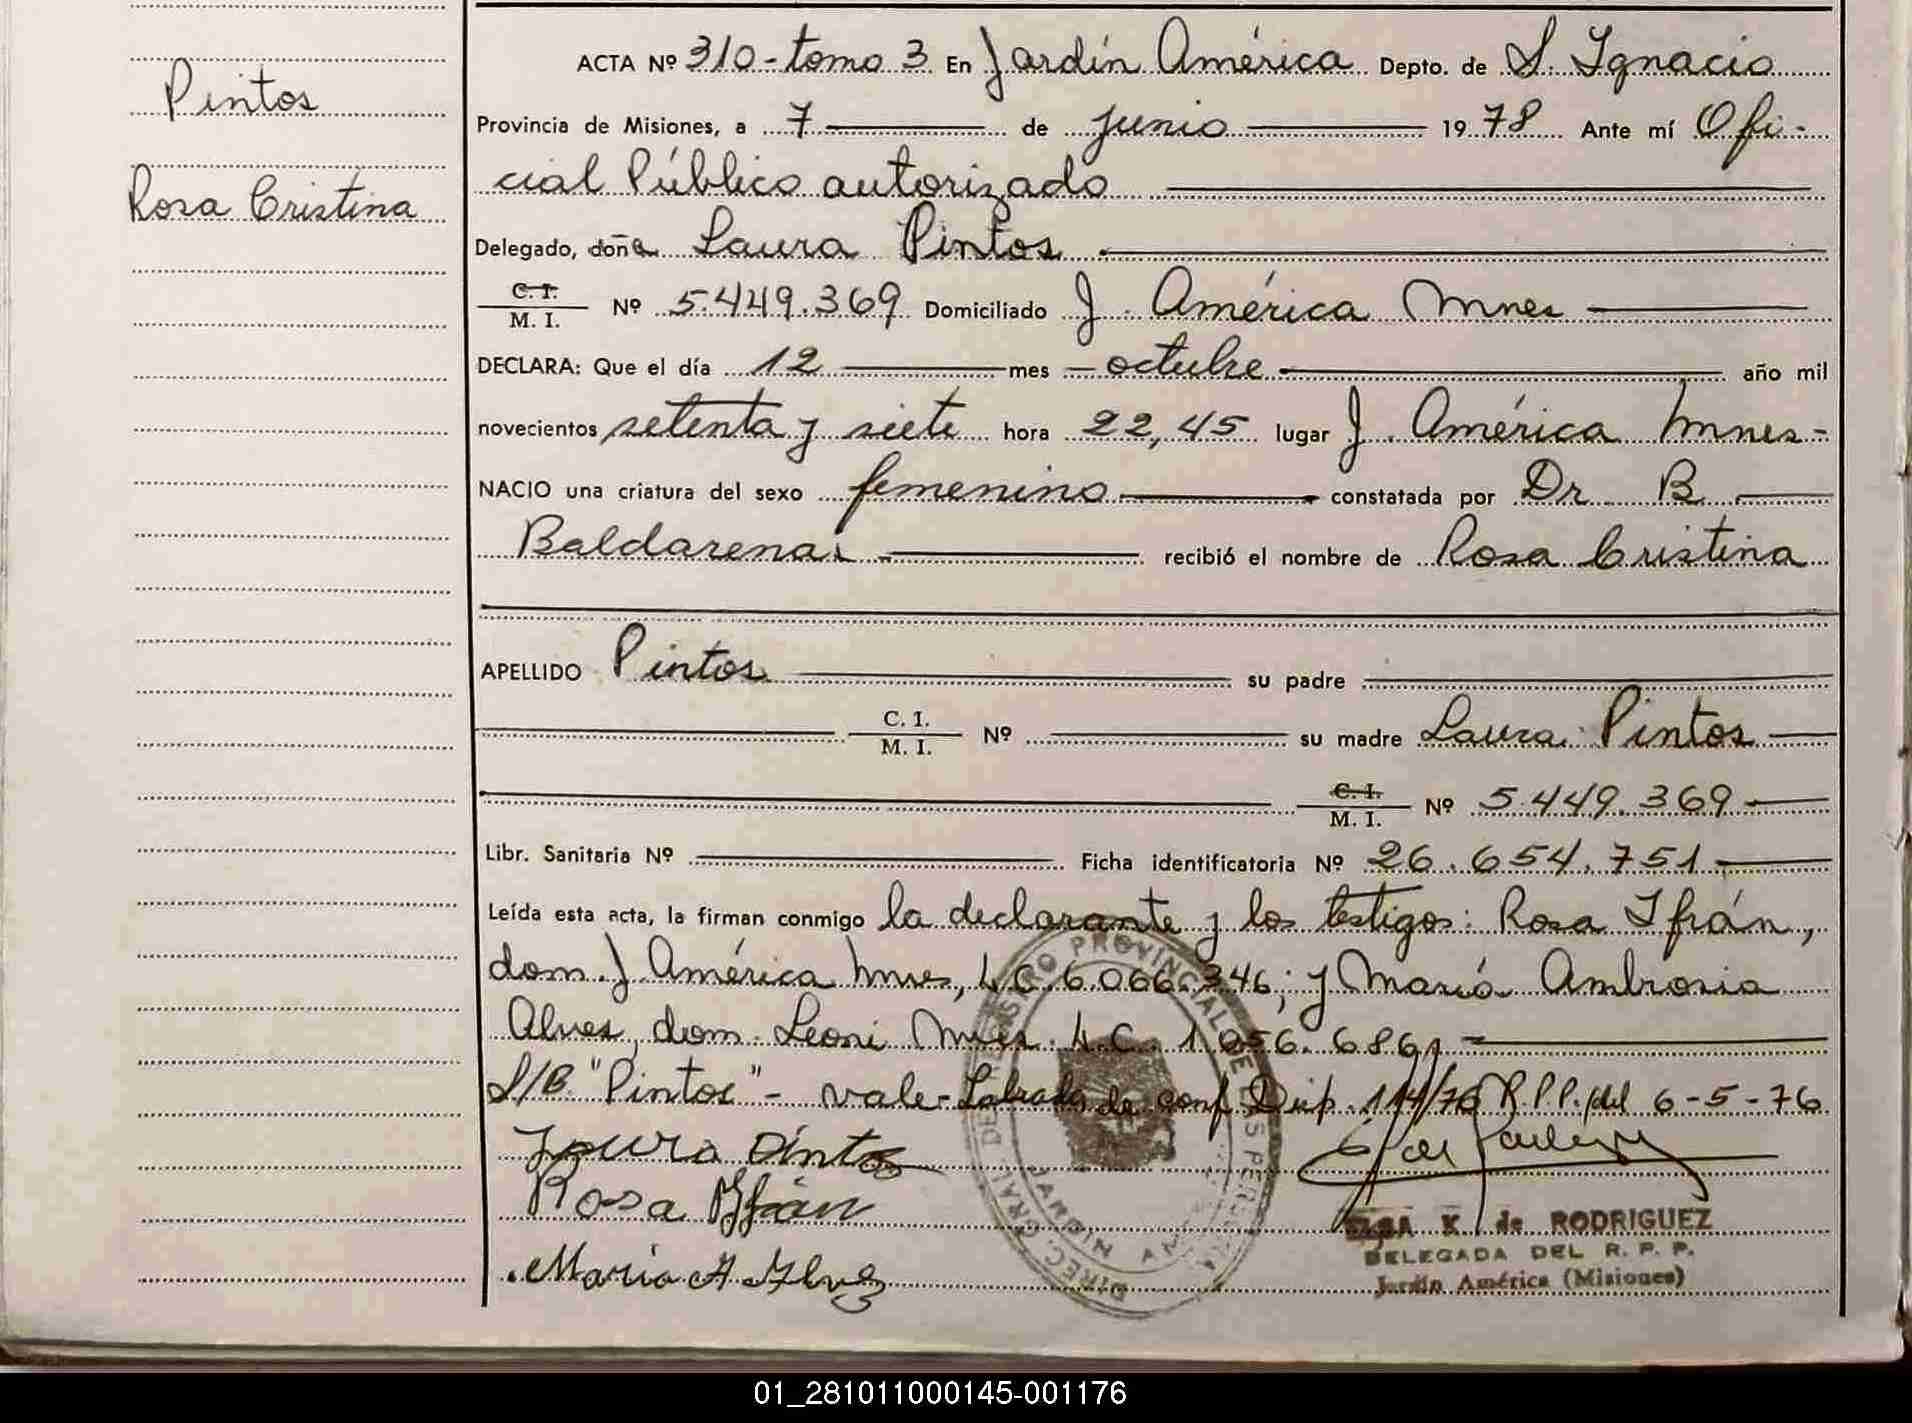 Pintos
Rosa Cristina
ACTA Nº 310-tomo 3 En Jardín América Depto. de S. Ignacio
Provincia de Misiones, a 7 de junio 1978 Ante mí Ofi-
cial Público autorizado
Delegado, doña Laura Pintos.
C. I. / M. I. Nº 5.449.369 Domiciliado J. América Mnes
DECLARA: Que el día 12 mes octubre año mil
novecientos setenta y siete hora 22,45 lugar J. América Mnes-
NACIO una criatura del sexo femenino constatada por Dr B
Baldarena recibió el nombre de Rosa Cristina
APELLIDO Pintos su padre
C. I. / M. I. Nº su madre Laura Pintos
C. I. / M. I. Nº 5.449.369
Libr. Sanitaria Nº Ficha identificatoria Nº 26.654.751
Leída esta acta, la firman conmigo la declarante y los testigos: Rosa Ifrán,
dom. J América Mnes, L.C. 6.066.346; y María Ambrosia
Alves, dom. Leoni Mnes. L.C. 1.656.686
S/B. "Pintos" - vale- Labrada de conf Disp. 114/76 R.P.P. del 6-5-76
Laura Pintos
Rosa Ifrán
María A Alvez
DIREC. GRAL DE REGISTRO PROVINCIAL DE LAS PERSONAS
JARDIN AMERICA
K de RODRIGUEZ
DELEGADA DEL R. P. P.
Jardín América (Misiones)
01_281011000145-001176